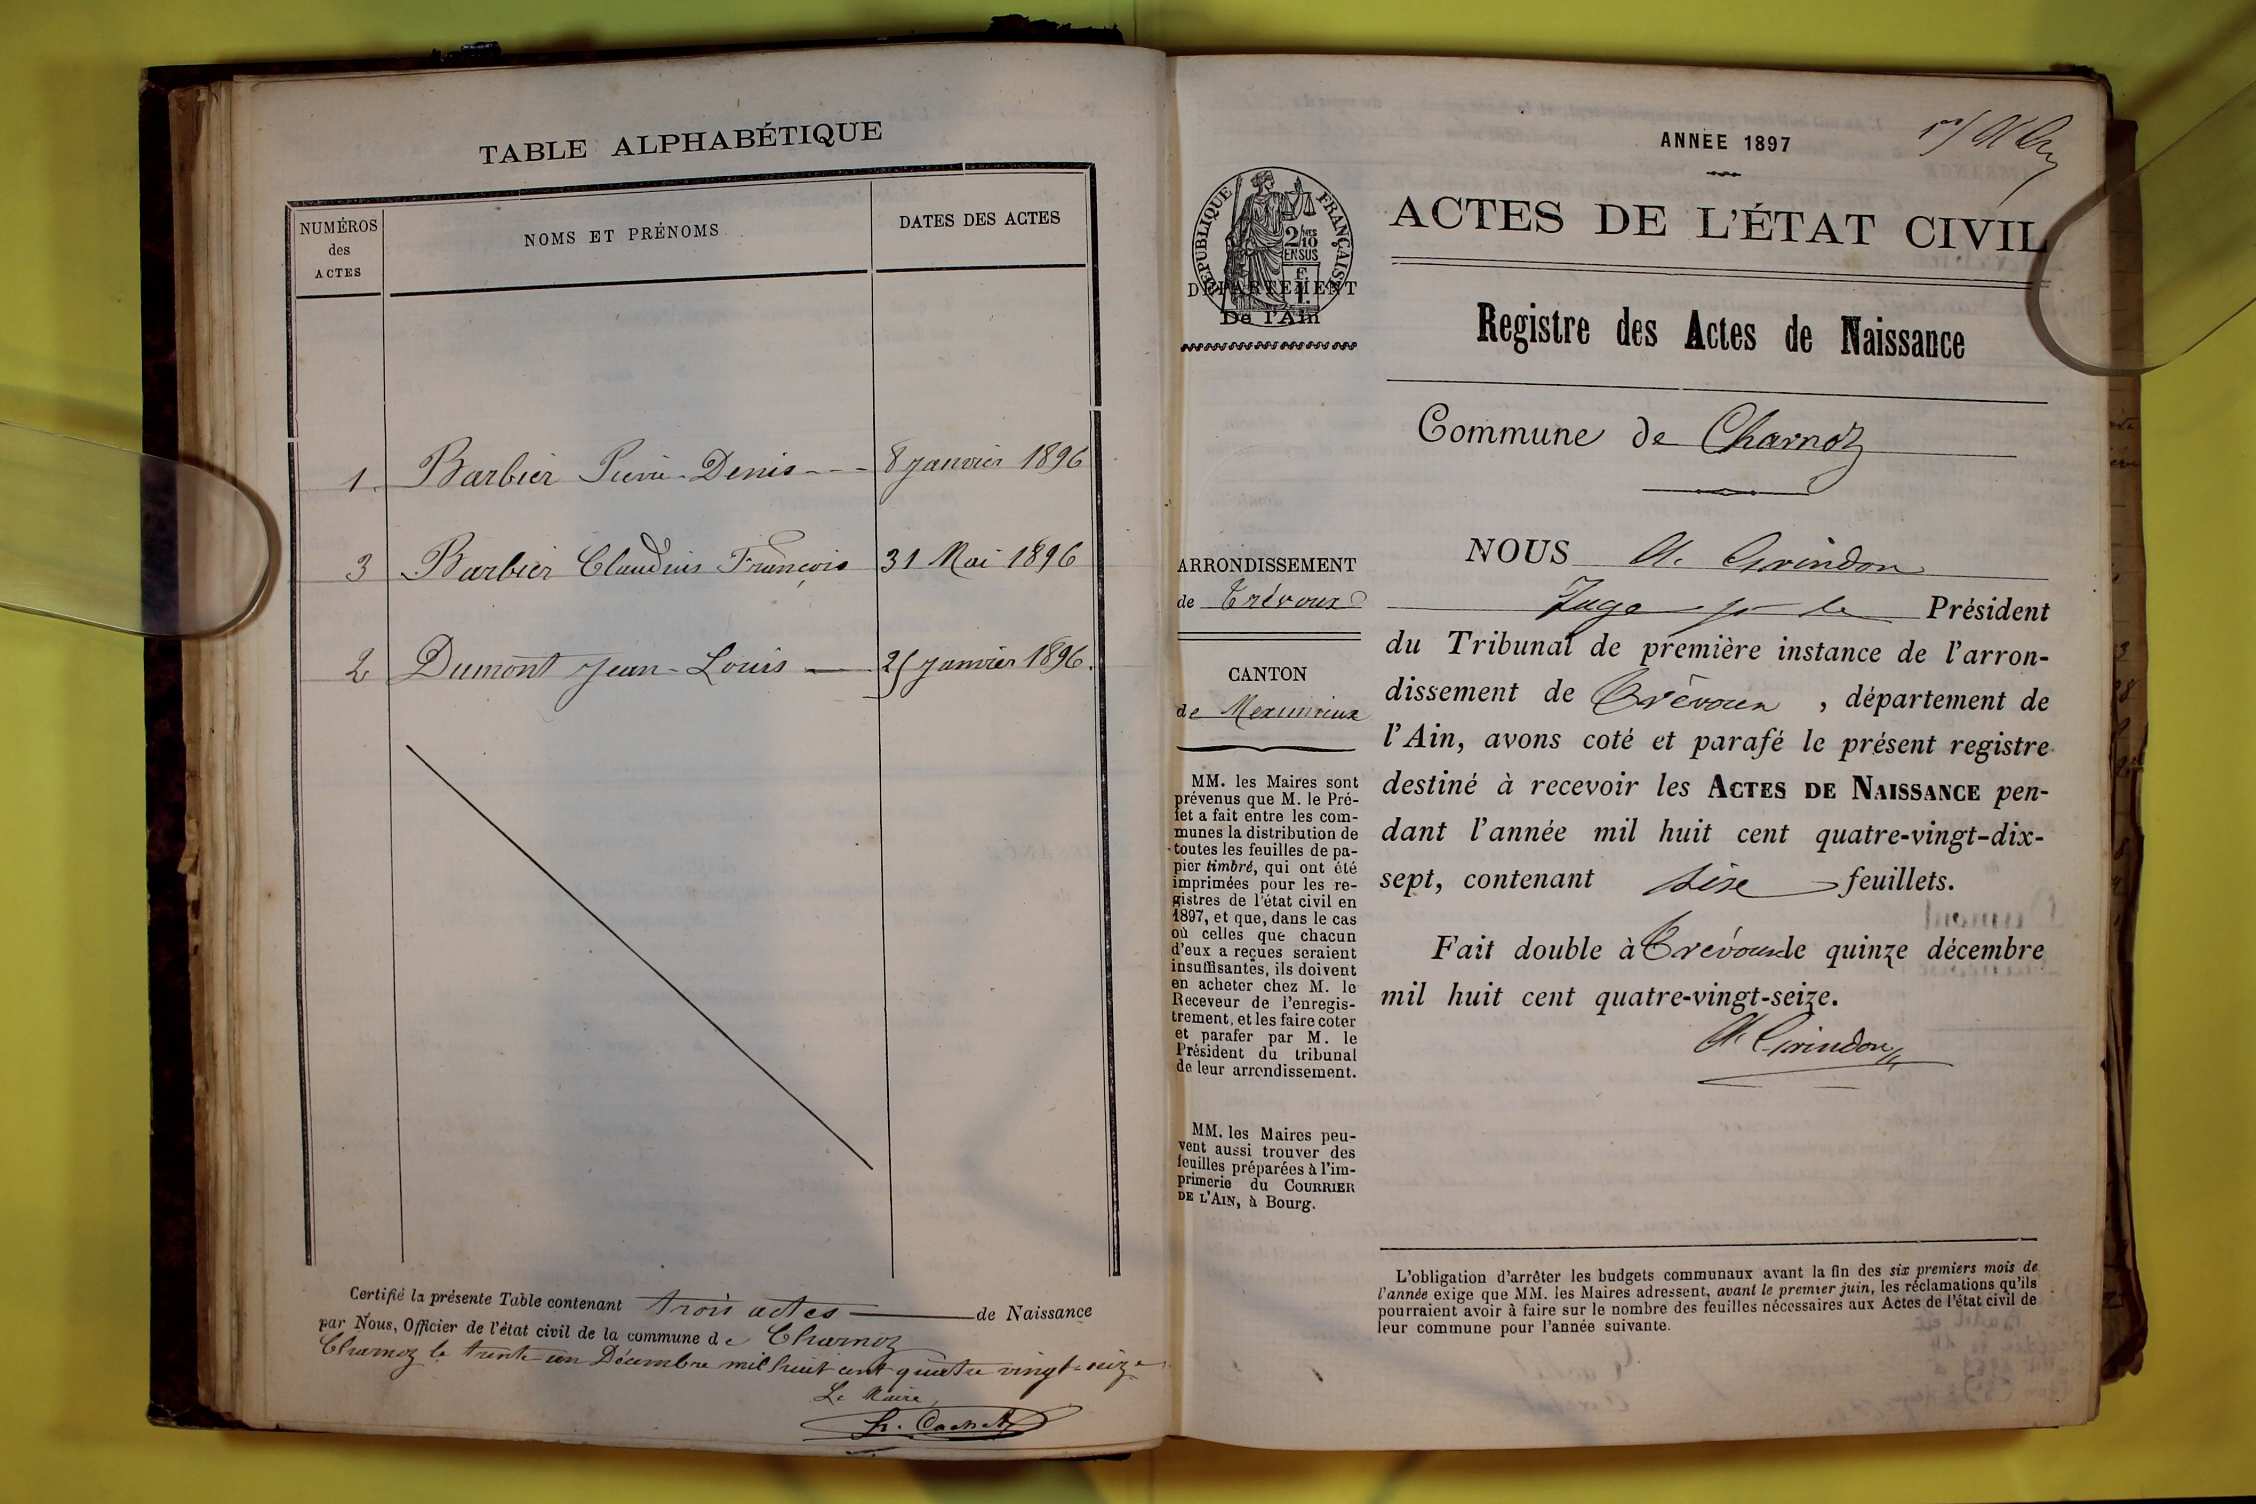 TABLE ALPHABÉTIQUE
NUMÉROS
des
ACTES
NOMS ET PRÉNOMS
DATES DES ACTES
1. Barbier Pierre-Denis 8 janvier 1896
3 Barbier Claudius François 31 Mai 1896
2 Dumont Jean-Louis 25 janvier 1896.
Certifié la présente Table contenant trois actes de Naissance
par Nous, Officier de l'état civil de la commune de Charnoz
Charnoz le trente un Décembre mil huit cent quatre vingt-seize
Le Maire,
ANNÉE 1897
RÉPUBLIQUE FRANÇAISE
2/10
EN SUS
F.
1.
DÉPARTEMENT
De l'Ain
ARRONDISSEMENT
de Trévoux
CANTON
de Meximieux
MM. les Maires sont
prévenus que M. le Pré-
fet a fait entre les com-
munes la distribution de
toutes les feuilles de pa-
pier timbré, qui ont été
imprimées pour les re-
gistres de l'état civil en
1897, et que, dans le cas
où celles que chacun
d'eux a reçues seraient
insuffisantes, ils doivent
en acheter chez M. le
Receveur de l'enregis-
trement, et les faire coter
et parafer par M. le
Président du tribunal
de leur arrondissement.
MM. les Maires peu-
vent aussi trouver des
feuilles préparées à l'im-
primerie du COURRIER
DE L'AIN, à Bourg.
ACTES DE L'ÉTAT CIVIL
Registre des Actes de Naissance
Commune de Charnoz
NOUS A. Grindon
Juge pr le Président
du Tribunal de première instance de l'arron-
dissement de Trévoux , département de
l'Ain, avons coté et parafé le présent registre
destiné à recevoir les ACTES DE NAISSANCE pen-
dant l'année mil huit cent quatre-vingt-dix-
sept, contenant sixe feuillets.
Fait double à Trévoux le quinze décembre
mil huit cent quatre-vingt-seize.
A. Grindon
L'obligation d'arrêter les budgets communaux avant la fin des six premiers mois de
l'année exige que MM. les Maires adressent, avant le premier juin, les réclamations qu'ils
pourraient avoir à faire sur le nombre des feuilles nécessaires aux Actes de l'état civil de
leur commune pour l'année suivante.